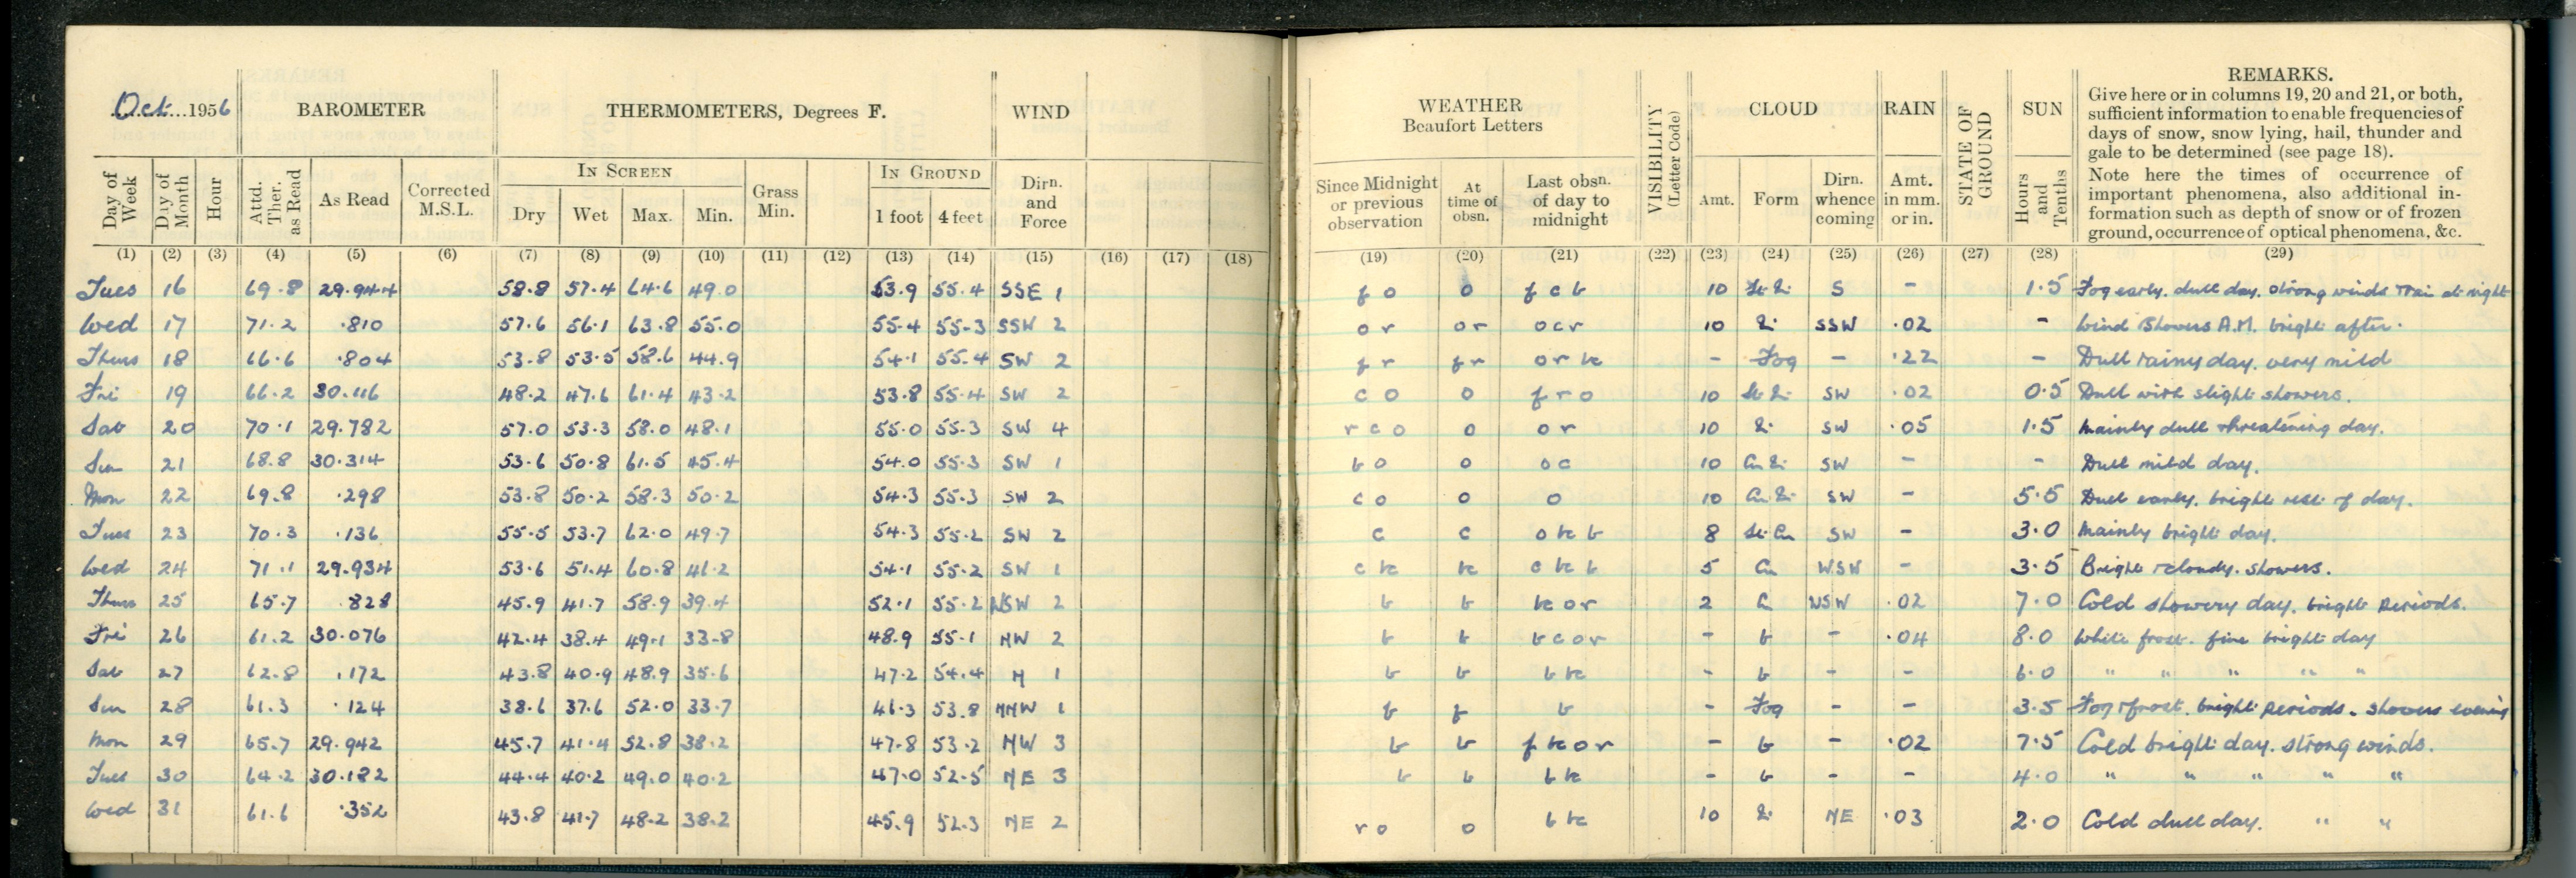 Oct. 1956 BAROMETER THERMOMETERS, Degrees F. WIND
Day of Week Day of Month Hour Attd. Ther. as Read As Read Corrected M.S.L. IN SCREEN Dry Wet Max. Min. Grass Min. IN GROUND 1 foot 4 feet Dirn. and Force
(1) (2) (3) (4) (5) (6) (7) (8) (9) (10) (11) (12) (13) (14) (15) (16) (17) (18)
Tues 16 69.8 29.944 58.8 57.4 64.6 49.0 53.9 55.4 SSE 1
Wed 17 71.2 .810 57.6 56.1 63.8 55.0 55.4 55.3 SSW 2
Thurs 18 66.6 .804 53.8 53.5 58.6 44.9 54.1 55.4 SW 2
Fri 19 66.2 30.116 48.2 47.6 61.4 43.2 53.8 55.4 SW 2
Sat 20 70.1 29.782 57.0 53.3 58.0 48.1 55.0 55.3 SW 4
Sun 21 68.8 30.314 53.6 50.8 61.5 45.4 54.0 55.3 SW 1
Mon 22 69.8 .298 53.8 50.2 58.3 50.2 54.3 55.3 SW 2
Tues 23 70.3 .136 55.5 53.7 62.0 49.7 54.3 55.2 SW 2
Wed 24 71.1 29.934 53.6 51.4 60.8 41.2 54.1 55.2 SW 1
Thurs 25 65.7 .828 45.9 41.7 58.9 39.4 52.1 55.2 WSW 2
Fri 26 61.2 30.076 42.4 38.4 49.1 33.8 48.9 55.1 NW 2
Sat 27 62.8 .172 43.8 40.9 48.9 35.6 47.2 54.4 N 1
Sun 28 61.3 .124 38.6 37.6 52.0 33.7 46.3 53.8 NNW 1
Mon 29 65.7 29.942 45.7 41.4 52.8 38.2 47.8 53.2 NW 3
Tues 30 64.2 30.182 44.4 40.2 49.0 40.2 47.0 52.5 NE 3
Wed 31 61.6 .352 43.8 41.7 48.2 38.2 45.9 52.3 NE 2
WEATHER Beaufort Letters VISIBILITY (Letter Code) CLOUD RAIN STATE OF GROUND SUN REMARKS.
Since Midnight or previous observation At time of obsn. Last obsn. of day to midnight Amt. Form Dirn. whence coming Amt. in mm. or in. Hours and Tenths
Give here or in columns 19, 20 and 21, or both,
sufficient information to enable frequencies of
days of snow, snow lying, hail, thunder and
gale to be determined (see page 18).
Note here the times of occurrence of
important phenomena, also additional in-
formation such as depth of snow or of frozen
ground, occurrence of optical phenomena, &c.
(19) (20) (21) (22) (23) (24) (25) (26) (27) (28) (29)
f o o f c b 10 S - 1.5 Fog early. dull day. strong winds + rain at night
o r o r o c r 10 SSW .02 - Wind Showers A.M. bright after.
f r f r o r - Fog - .22 - Dull rainy day. very mild
c o o f r o 10 SW .02 0.5 Dull with slight showers.
r c o o o r 10 SW .05 1.5 Mainly dull threatening day.
b o o o c 10 SW - - Dull mild day.
c o o o 10 SW - 5.5 Dull early. bright rest of day.
c c o b 8 St. Cu SW - 3.0 Mainly bright day.
c c b 5 Cu WSW - 3.5 Bright + cloudy. showers.
b b o r 2 WSW .02 7.0 Cold showery day. bright periods.
b b b c o r - b - .04 8.0 White frost. fine bright day
b b b - b - - 6.0 " " " " "
f b - Fog - - 3.5 Fog + frost. bright periods. showers evening
b b f o r - b - .02 7.5 Cold bright day. strong winds.
b b b - b - - 4.0 " " " " "
r o o b 10 NE .03 2.0 Cold dull day. " "